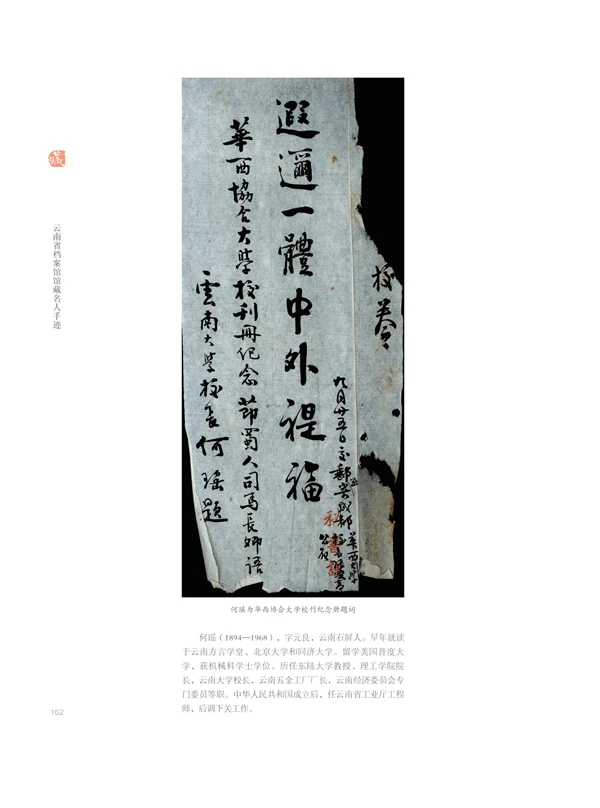 藏
云南省档案馆馆藏名人手迹
校養
遐邇一體中外禔福
華西協合大學校刊冊纪念 節蜀人司马長卿語
雲南大学校長何瑶題
九月廿五日
成都
華西大学
何瑶为华西协合大学校刊纪念册题词
何瑶（1894—1968），字元良，云南石屏人。早年就读
于云南方言学堂、北京大学和同济大学。留学美国普度大
学，获机械科学士学位。历任东陆大学教授、理工学院院
长，云南大学校长，云南五金工厂厂长，云南经济委员会专
门委员等职。中华人民共和国成立后，任云南省工业厅工程
师，后调下关工作。
162